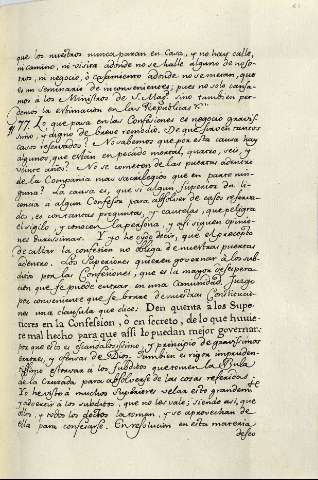 que los nuestros nunca paran en Casa, y no hay calle,
ni camino, ni visita adonde no se halle alguno de noso-
tros, ni negocio, ò casamiento adonde no se metan, que
es un seminario de inconvenientes; pues no solo cansa-
mos à los Ministros de S. Mag.d sino tambien per-
demos la estimacion en las Republicas &c.
77. Lo que pasa en las Confesiones es negocio gravis-
simo, y digno de breve remedio. De què sirven tantos
casos reservados? No sabemos que por esta causa hay
algunos, que están en pecado mortal, quatro, seis, y
veinte años? No se cometen de las puertas adentro
de la Compañia mas sacrilegios que en parte nin-
guna? La causa es, que si algun Superior da li-
cencia à algun Confesor para absolver de casos reserva-
dos, es con tantas preguntas, y cautelas, que peligra
el sigilo, y conocen la persona, y assi siguen opinio-
nes
Y yo he oido decir, que el precepto
de callar la confesion no obliga de nuestras puertas
adentro. Los Superiores quieren governar à los sub-
ditos por las Confesiones, que es la mayor desespera-
cion que se puede en una Comunidad. Juzgo
por conveniente que se borre de nuestras Constitucio-
nes una clausula que dice: Den quenta à los Supe-
riores en la Confession, ò en secreto, de lo que huvie-
re mal hecho para que assi lo puedan mejor governar:
por que esto es escandalosissimo, y principio de gravissimos
errores, y ofensas de Dios. Tambien es rigor impruden-
tissimo estorvar à los subditos que tomen la Bula
de la Cruzada para absolverse de las cosas reservadas.
Yo he visto à muchos Superiores zelar esto grandemte
y advertir à los subditos, que no les vale; siendo asi, que
ellos, y todos los doctos la toman, y se aprovechan de
ella para confesarse. En resolucion en esta materia
deseo